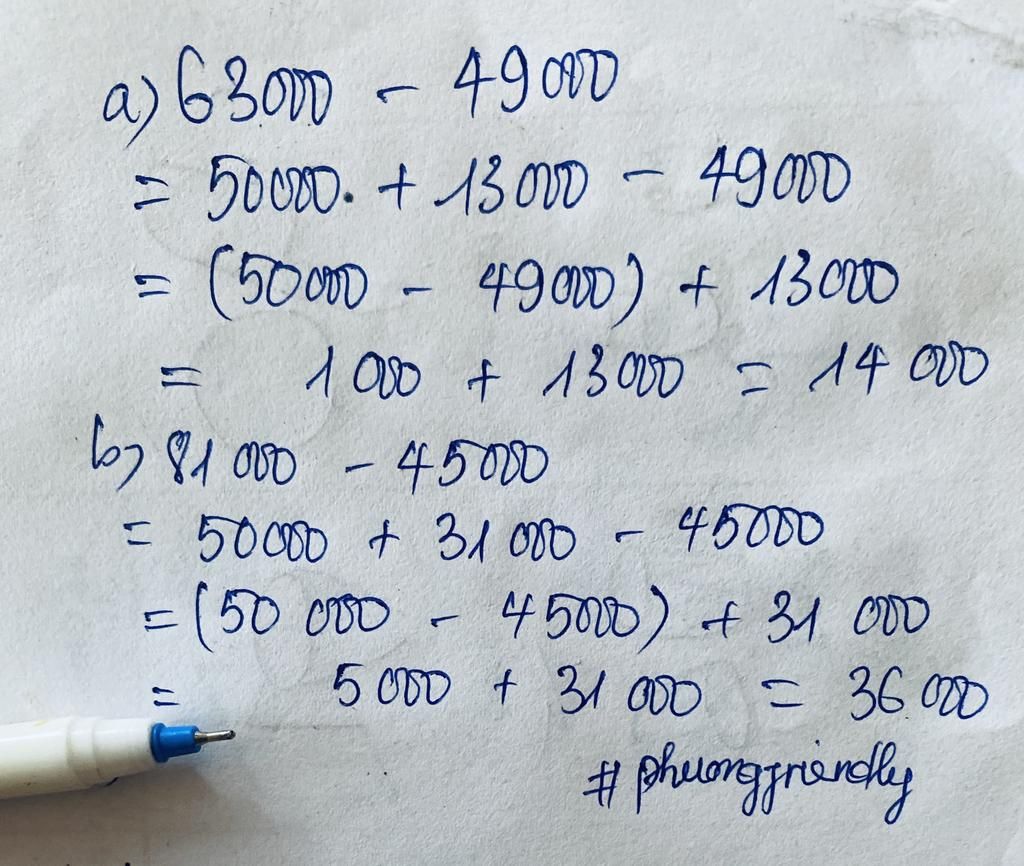 a) 63000 - 49000
= 50000 + 13000 - 49000
= (50000 - 49000) + 13000
= 1000 + 13000 = 14 000
b) 81 000 - 45000
= 50000 + 31 000 - 45000
= (50 000 - 45000) + 31 000
= 5000 + 31 000 = 36 000
# phuongfriendly